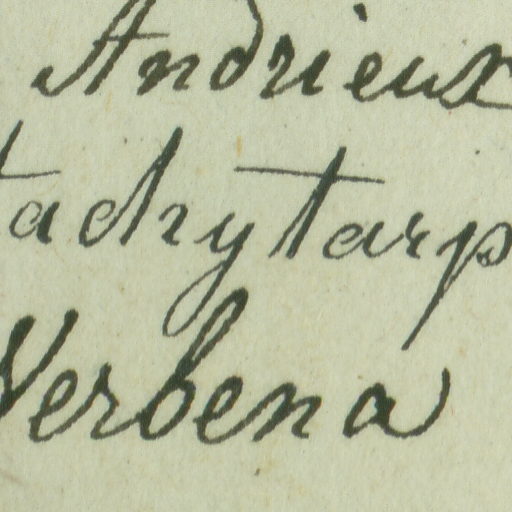 Andrieux
tachytarp
Verbena